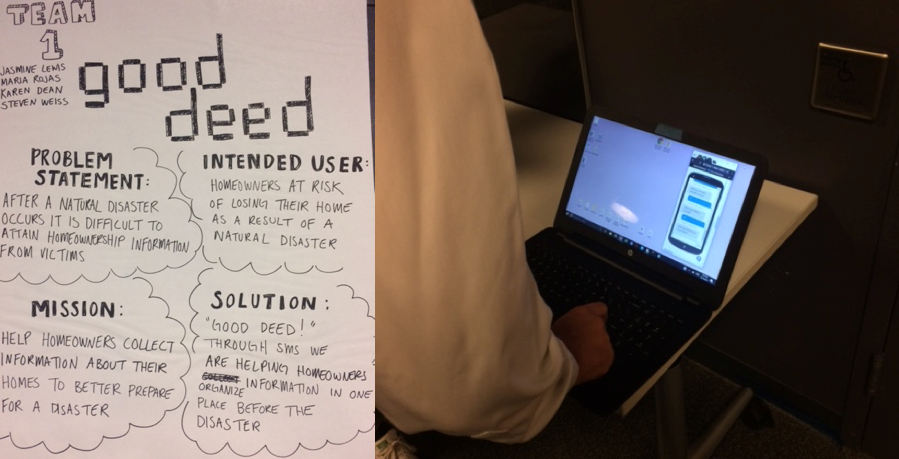 TEAM
1
JASMINE LEWIS
MARIA ROJAS
KAREN DEAN
STEVEN WEISS
good
deed
PROBLEM
STATEMENT:
AFTER A NATURAL DISASTER
OCCURS IT IS DIFFICULT TO
ATTAIN HOMEOWNERSHIP INFORMATION
FROM VICTIMS
INTENDED USER:
HOMEOWNERS AT RISK
OF LOSING THEIR HOME
AS A RESULT OF A
NATURAL DISASTER
MISSION:
HELP HOMEOWNERS COLLECT
INFORMATION ABOUT THEIR
HOMES TO BETTER PREPARE
FOR A DISASTER
SOLUTION:
"GOOD DEED!"
THROUGH SMS WE
ARE HELPING HOMEOWNERS
ORGANIZE INFORMATION IN ONE
PLACE BEFORE THE
DISASTER
hp